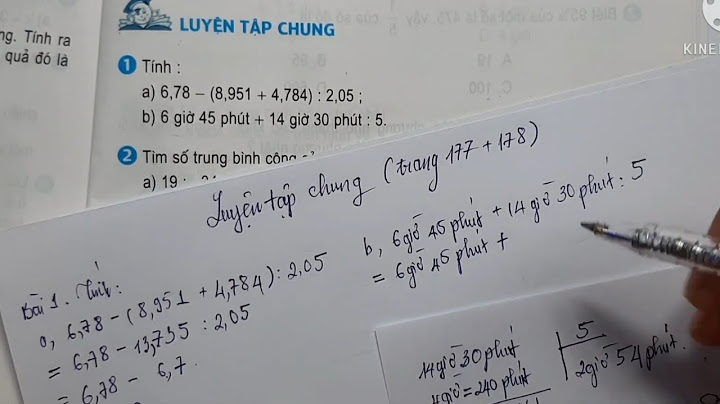 ng. Tính ra
quả đó là
LUYỆN TẬP CHUNG
1 Tính :
a) 6,78 – (8,951 + 4,784) : 2,05 ;
b) 6 giờ 45 phút + 14 giờ 30 phút : 5.
2 Tìm số trung bình cộng
a) 19 ;
KINE
Luyện tập chung (trang 177 + 178)
Bài 1. Tính:
a, 6,78 - (8,951 + 4,784) : 2,05
= 6,78 - 13,735 : 2,05
= 6,78 - 6,7
b, 6 giờ 45 phút + 14 giờ 30 phút : 5
= 6 giờ 45 phút +
14 giờ 30 phút
4 giờ = 240 phút
5
2 giờ 54 phút.